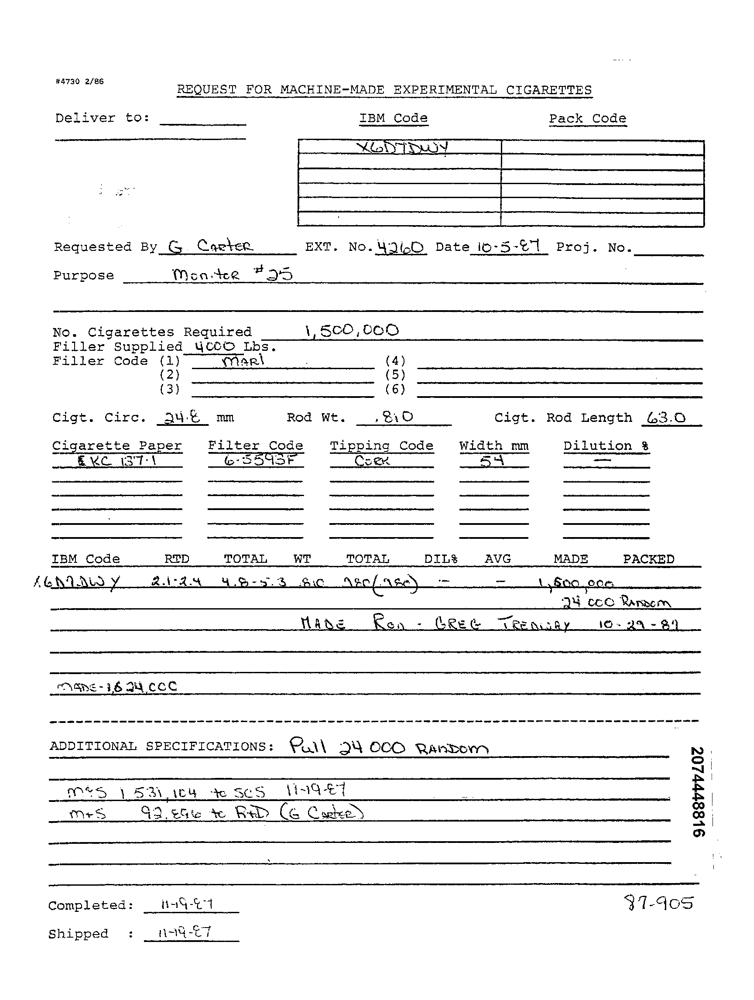 #4730 2/86
REQUEST FOR MACHINE-MADE EXPERIMENTAL CIGARETTES
Deliver to: IBM Code Pack Code
X6D7DWY
Requested By G Carter EXT. No. 4260 Date 10-5-87 Proj. No.
Purpose Monitor #25
No. Cigarettes Required 1,500,000
Filler Supplied 4000 Lbs.
Filler Code (1) MAR1 (4)
(2) (5)
(3) (6)
Cigt. Circ. 24.8 mm Rod Wt. .810 Cigt. Rod Length 63.0
Cigarette Paper Filter Code Tipping Code Width mm Dilution %
KC 137-1 6-5593F Cork 54 —
IBM Code RTD TOTAL WT TOTAL DIL% AVG MADE PACKED
X6D7DWY 2.1-2.4 4.8-5.3 .810 980(980) - - 1,600,000
24 000 Random
MADE Ron - GREG TREDWAY 10-29-87
MADE-1,624,000
ADDITIONAL SPECIFICATIONS: Pull 24 000 RANDOM
M+S 1 531,104 to SCS 11-19-87
M+S 92,896 to R+D (G Carter)
2074448816
Completed: 11-19-87
87-905
Shipped : 11-19-87